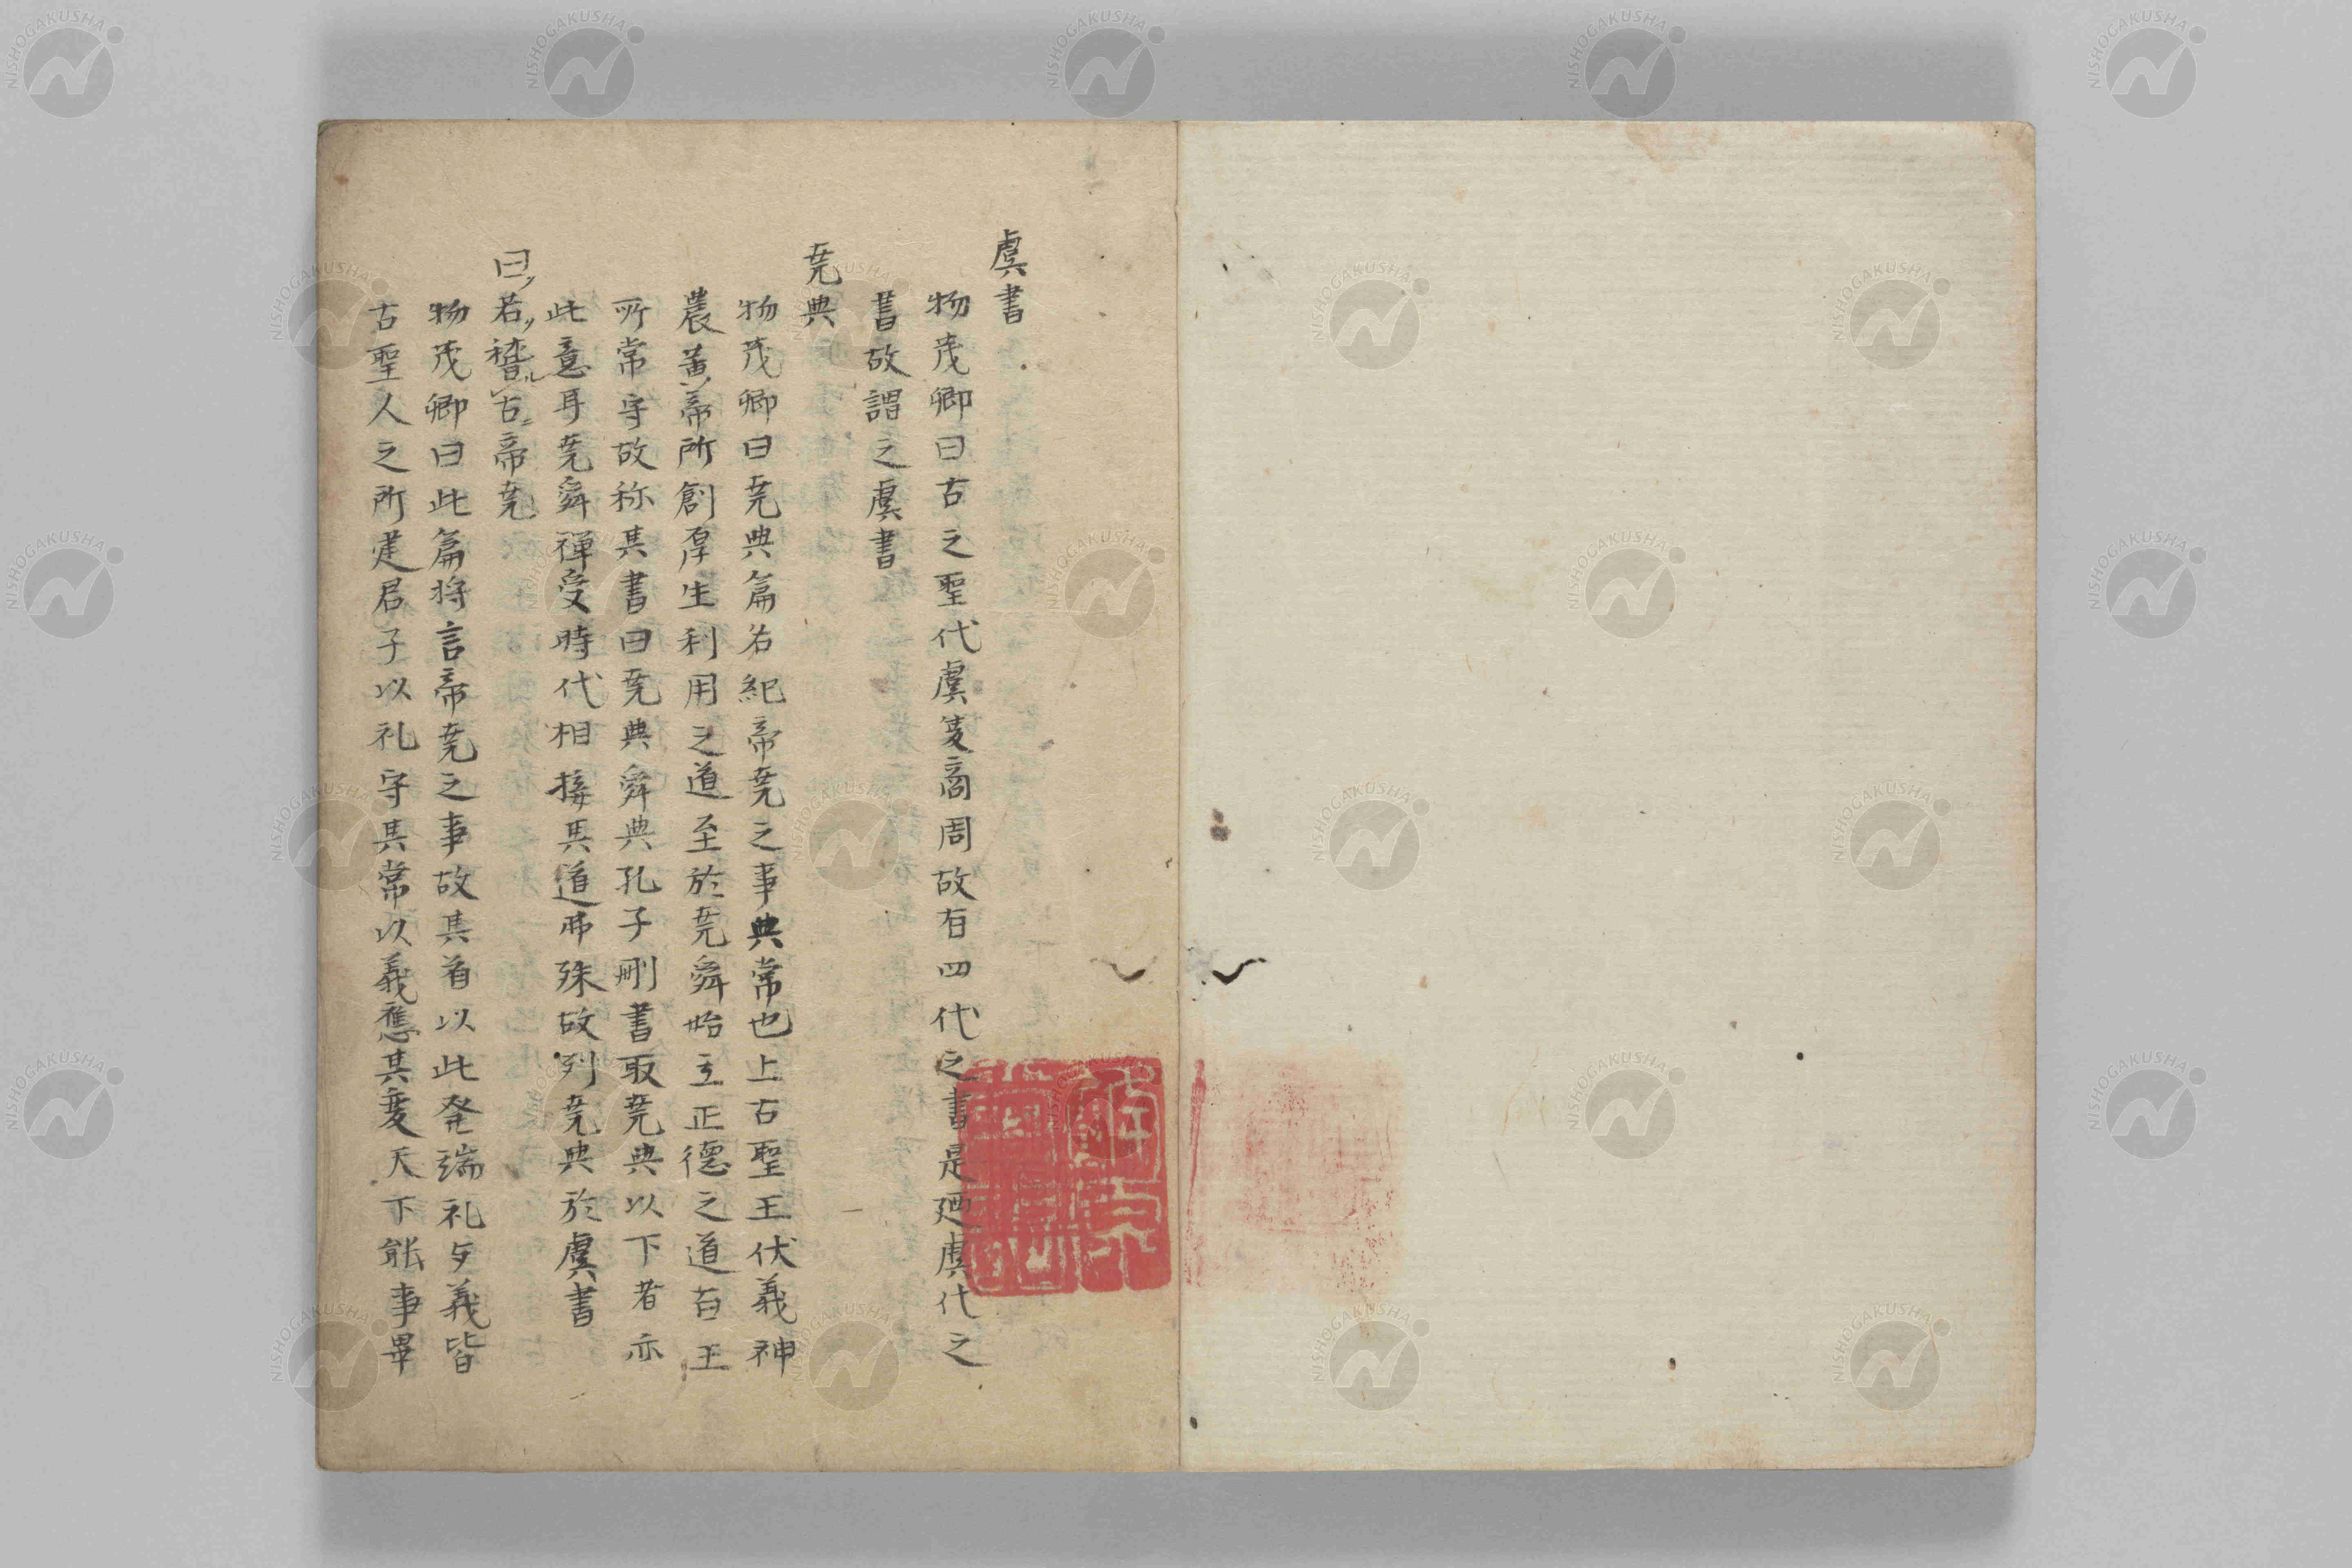 虞書
物茂卿曰古之聖代虞夏商周故有四代之書是廼虞代之
書故謂之虞書
尭典
物茂卿曰尭典篇名紀帝尭之事典常也上古聖王伏義神
農黄帝所創厚生利用之道至於尭舜始立正德之道百王
所常守故称其書曰尭典舜典孔子刪書取尭典以下者亦
此意耳尭舜禅受時代相接其道弗殊故列尭典於虞書
曰若稽古帝尭
物茂卿曰此篇将言帝尭之事故其首以此発端礼与義皆
古聖人之所建君子以礼守其常以義應其変天下能事畢
NISHOGAKUSHA